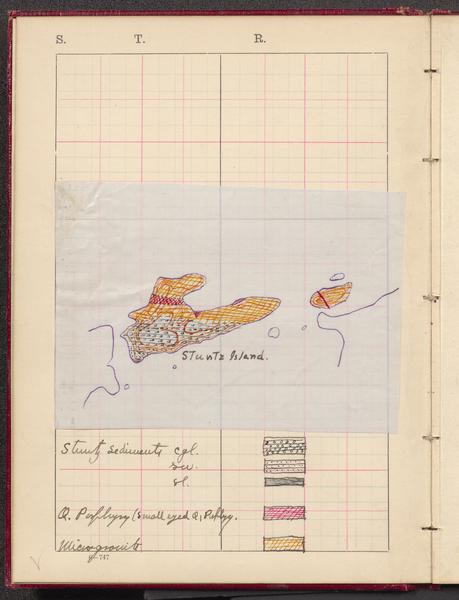 S. T. R.
Stuntz Island.
Stuntz sediments cgl.
sl.
Q. Porphyry (small eyed Q. Porphy.
Microgranite
747